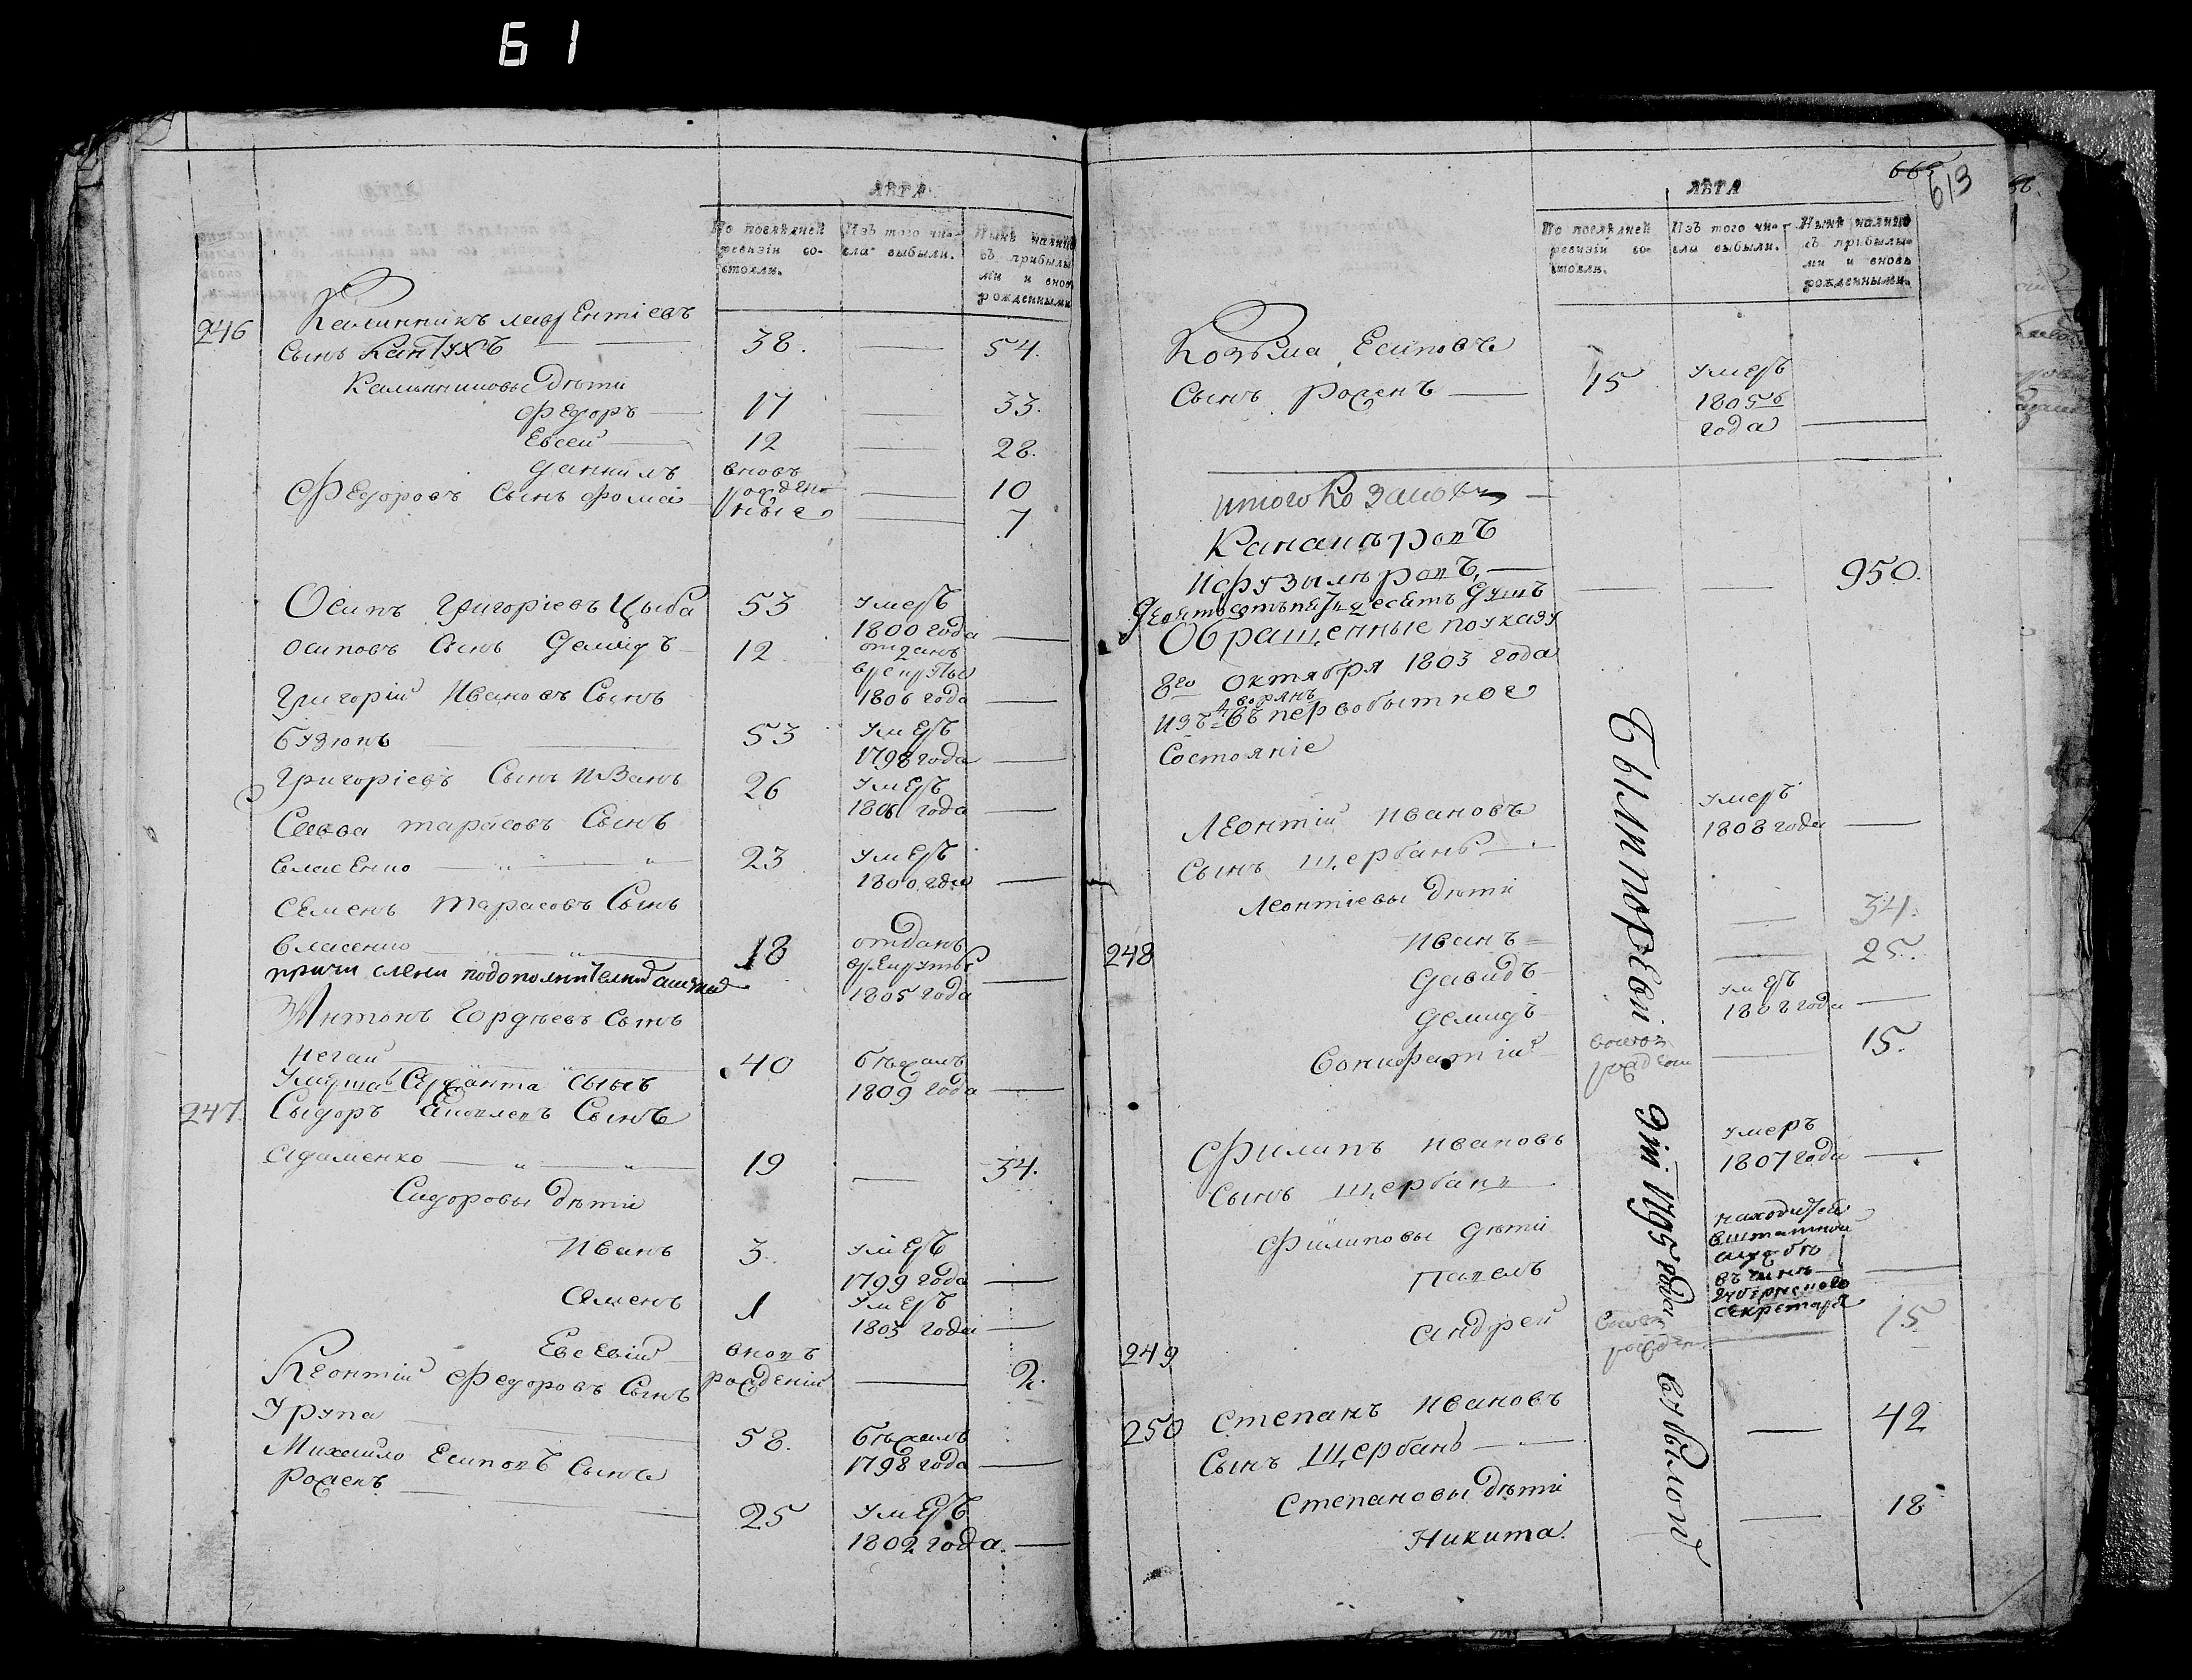 61
ЛѢТА
По послѣдней ревизіи со-стояли.
Изъ того чи-сла выбыли.
Нынѣ на лицо съ прибылы-ми и вновь рожденными
246
Калинникъ лаврентіевъ
Сынъ Кантухъ 38. 54.
Калинниковы дѣти
Федоръ 17 33.
Евсей 12 28.
Данилъ вновь 10
Федоровъ Сынъ Фома рожденные 7
Осипъ Григоріевъ Цыба 53 умеръ
1800 года
Осиповъ Сынъ Демидъ 12 отданъ
в рекруты
Григорій Ивановъ Сынъ 1806 года
бузюнъ 53 умеръ
1798 года
Григоріевъ Сынъ Иванъ 26 умеръ
1806 года
Савва тарасовъ Сынъ
власенко 23 умеръ
1800 года
Семенъ тарасовъ Сынъ
власенко 18 отданъ
в рекруты
1805 года
Антонъ Гордѣевъ Сынъ
Негай 40 бѣжалъ
1809 года
умерша Сержанта сынъ
247. Сыдоръ Сынъ
Адаменко 19 34.
Сидоровы дѣти
Иванъ 3. умеръ
1799 года
Семенъ 1 умеръ
1803 года
Евсевій вновь
рожденій 2.
Леонтій Федоровъ Сынъ
Урупа 58. бѣжалъ
1798 года
Михайло Есиповъ Сынъ
Роженъ 25 умеръ
1802 года
665
613
ЛѢТА
По послѣдней ревизіи со-стояли.
Изъ того чи-сла выбыли.
Нынѣ на лицо съ прибылы-ми и вновь рожденными.
Козьма Есиповъ
Сынъ роженъ 15 умеръ
1805б
года
итого Козаковъ
Кананѣровъ
Ифузылѣровъ, 950.
Девятьсотъ пятдесятъ душъ
Обращенные поуказу
8го октября 1803 года
изъ дворянъ въ первобытное
Состояніе
Леонтій Ивановъ умеръ
1808 года
Сынъ Щербань
Леонтіевы дѣти
248 Иванъ 34.
Давидъ 25.
Демидъ умеръ
1808 года
Вонифатій вновь рожден 15.
Филипъ Ивановъ умеръ
1807 года
Сынъ Щербань
Филиповы дѣти
Павелъ находится
в штатной
службѣ
въ чинѣ
губернского
секретаря
249 Андрей вновь рожден 15
250 Степанъ Ивановъ 42
Сынъ Щербань
Степановы дѣти
Никита. 18
Были поревій 1795 года